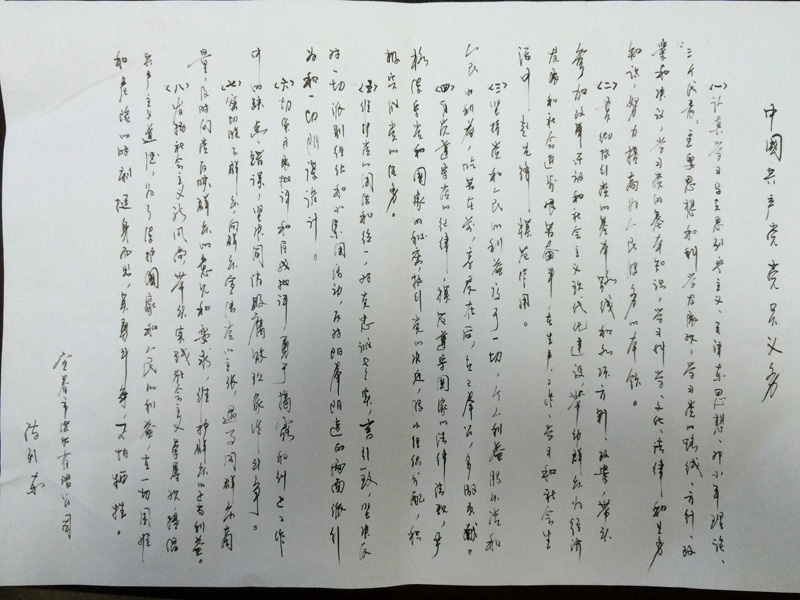 中國共产党党员义务
(一)认真学习马克思列宁主义、毛泽东思想、邓小平理论、
“三个代表”主要思想和科学发展观,学习党的路线、方针、政
策和决议,学习党的基本知识,学习科学、文化、法律和业务
知识,努力提高为人民服务的本领。
(二)贯彻执行党的基本路线和各项方针、政策,带头
参加改革开放和社会主义现代化建设,带动群众为经济
发展和社会进步艰苦奋斗,在生产、工作、学习和社会生
活中起先锋模范作用。
(三)坚持党和人民的利益高于一切,个人利益服从党和
人民的利益,吃苦在前,享受在后,克己奉公,多做贡献。
(四)自觉遵守党的纪律,模范遵守国家的法律法规,严
格保守党和國家的秘密,执行党的决定,服从组织分配,积
极完成党的任务。
(五)维护党的团结和统一,对党忠诚老实,言行一致,坚决反
对一切派别组织和小集团活动,反对阳奉阴违的两面派行
为和一切阴谋诡计。
(六)切实开展批评和自我批评,勇于揭露和纠正工作
中的缺点、错误,坚决同消极腐败现象作斗争。
(七)密切联系群众,向群众宣传党的主张,遇事同群众商
量,及时向党反映群众的意见和要求,维护群众的正当利益。
(八)发扬社会主义新风尚,带头实践社会主义荣辱观,提倡
共产主义道德,为了保护國家和人民的利益,在一切困难
和危险的时刻挺身而出,英勇斗争,不怕牺牲。